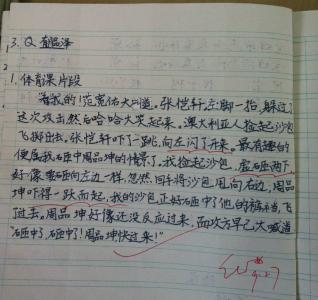 3. Q 有温泽
1. 体育课片段
看我的!范宽佑大叫道。张恺轩左脚一抬,躲过了
这次攻击然后哈哈大笑起来。澳大利亚人捡起沙包
飞掷出去。张恺轩吓了一跳,向左闪了开来。最有趣的
便属我砸中周品坤的情景了。我捡起沙包,虚砸两下
好像要砸向左边一样。忽然间手将沙包甩向右边,周品
坤吓得一跃而起,我的沙包正好砸中了他的裤裆,当飞
过去。周品坤好像还没反应过来,而次方早已大喊道
"砸中了,砸中了!周品坤快过来!"